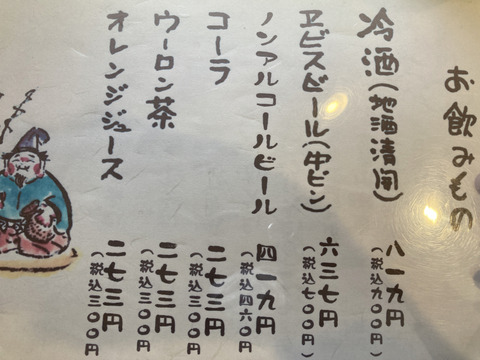 お飲みもの
冷酒(地酒清開) 八一九円
(税込九〇〇円)
ヱビスビール(中ビン) 六三七円
(税込七〇〇円)
ノンアルコールビール 四一九円
(税込四六〇円)
コーラ 二七三円
(税込三〇〇円)
ウーロン茶 二七三円
(税込三〇〇円)
オレンジジュース 二七三円
(税込三〇〇円)